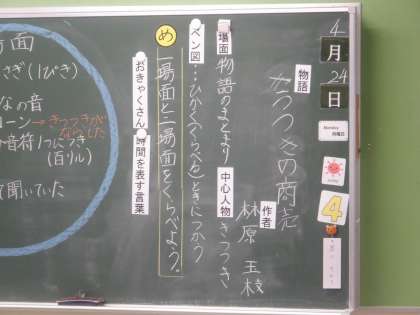 4
月
24
日
Monday
月曜日
4
物語
きつつきの商売
作者
林原 玉枝
場面 物語のまとまり 中心人物 きつつき
ベン図…ひかく(くらべる)ときにつかう
め 一場面と二場面をくらべよう。
おきゃくさん 時間を表す言葉
場面
さぎ(1ぴき)
なの音
コーン→きつつきが
ならした
音符1つにつき
(百リル)
聞いていた